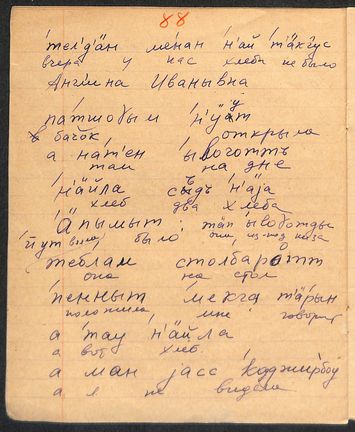 88
тел'д'äн менан н'ай т'äкг'ус
вчера у нас хлеба не было
Ангiина Иванывна
патшоɣым н'ӱɣäт
в бачок открыла
а нат'ен ывоготть
там на дне
н'äйла съдъ н'äja
хлеб два хлеба
äпымыт. тäп ывоɣотды
было они, из-под низа
теблам столбаротт
она на стол
пенныт мекга тäрын
положила мне говорит
а тау н'äйла
а вот хлеб.
а ман jасс кɔджирбоу
а я не видела